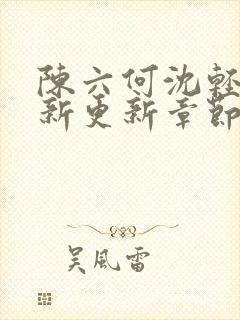 陳六何沈輕
新更新章節
吴風雷